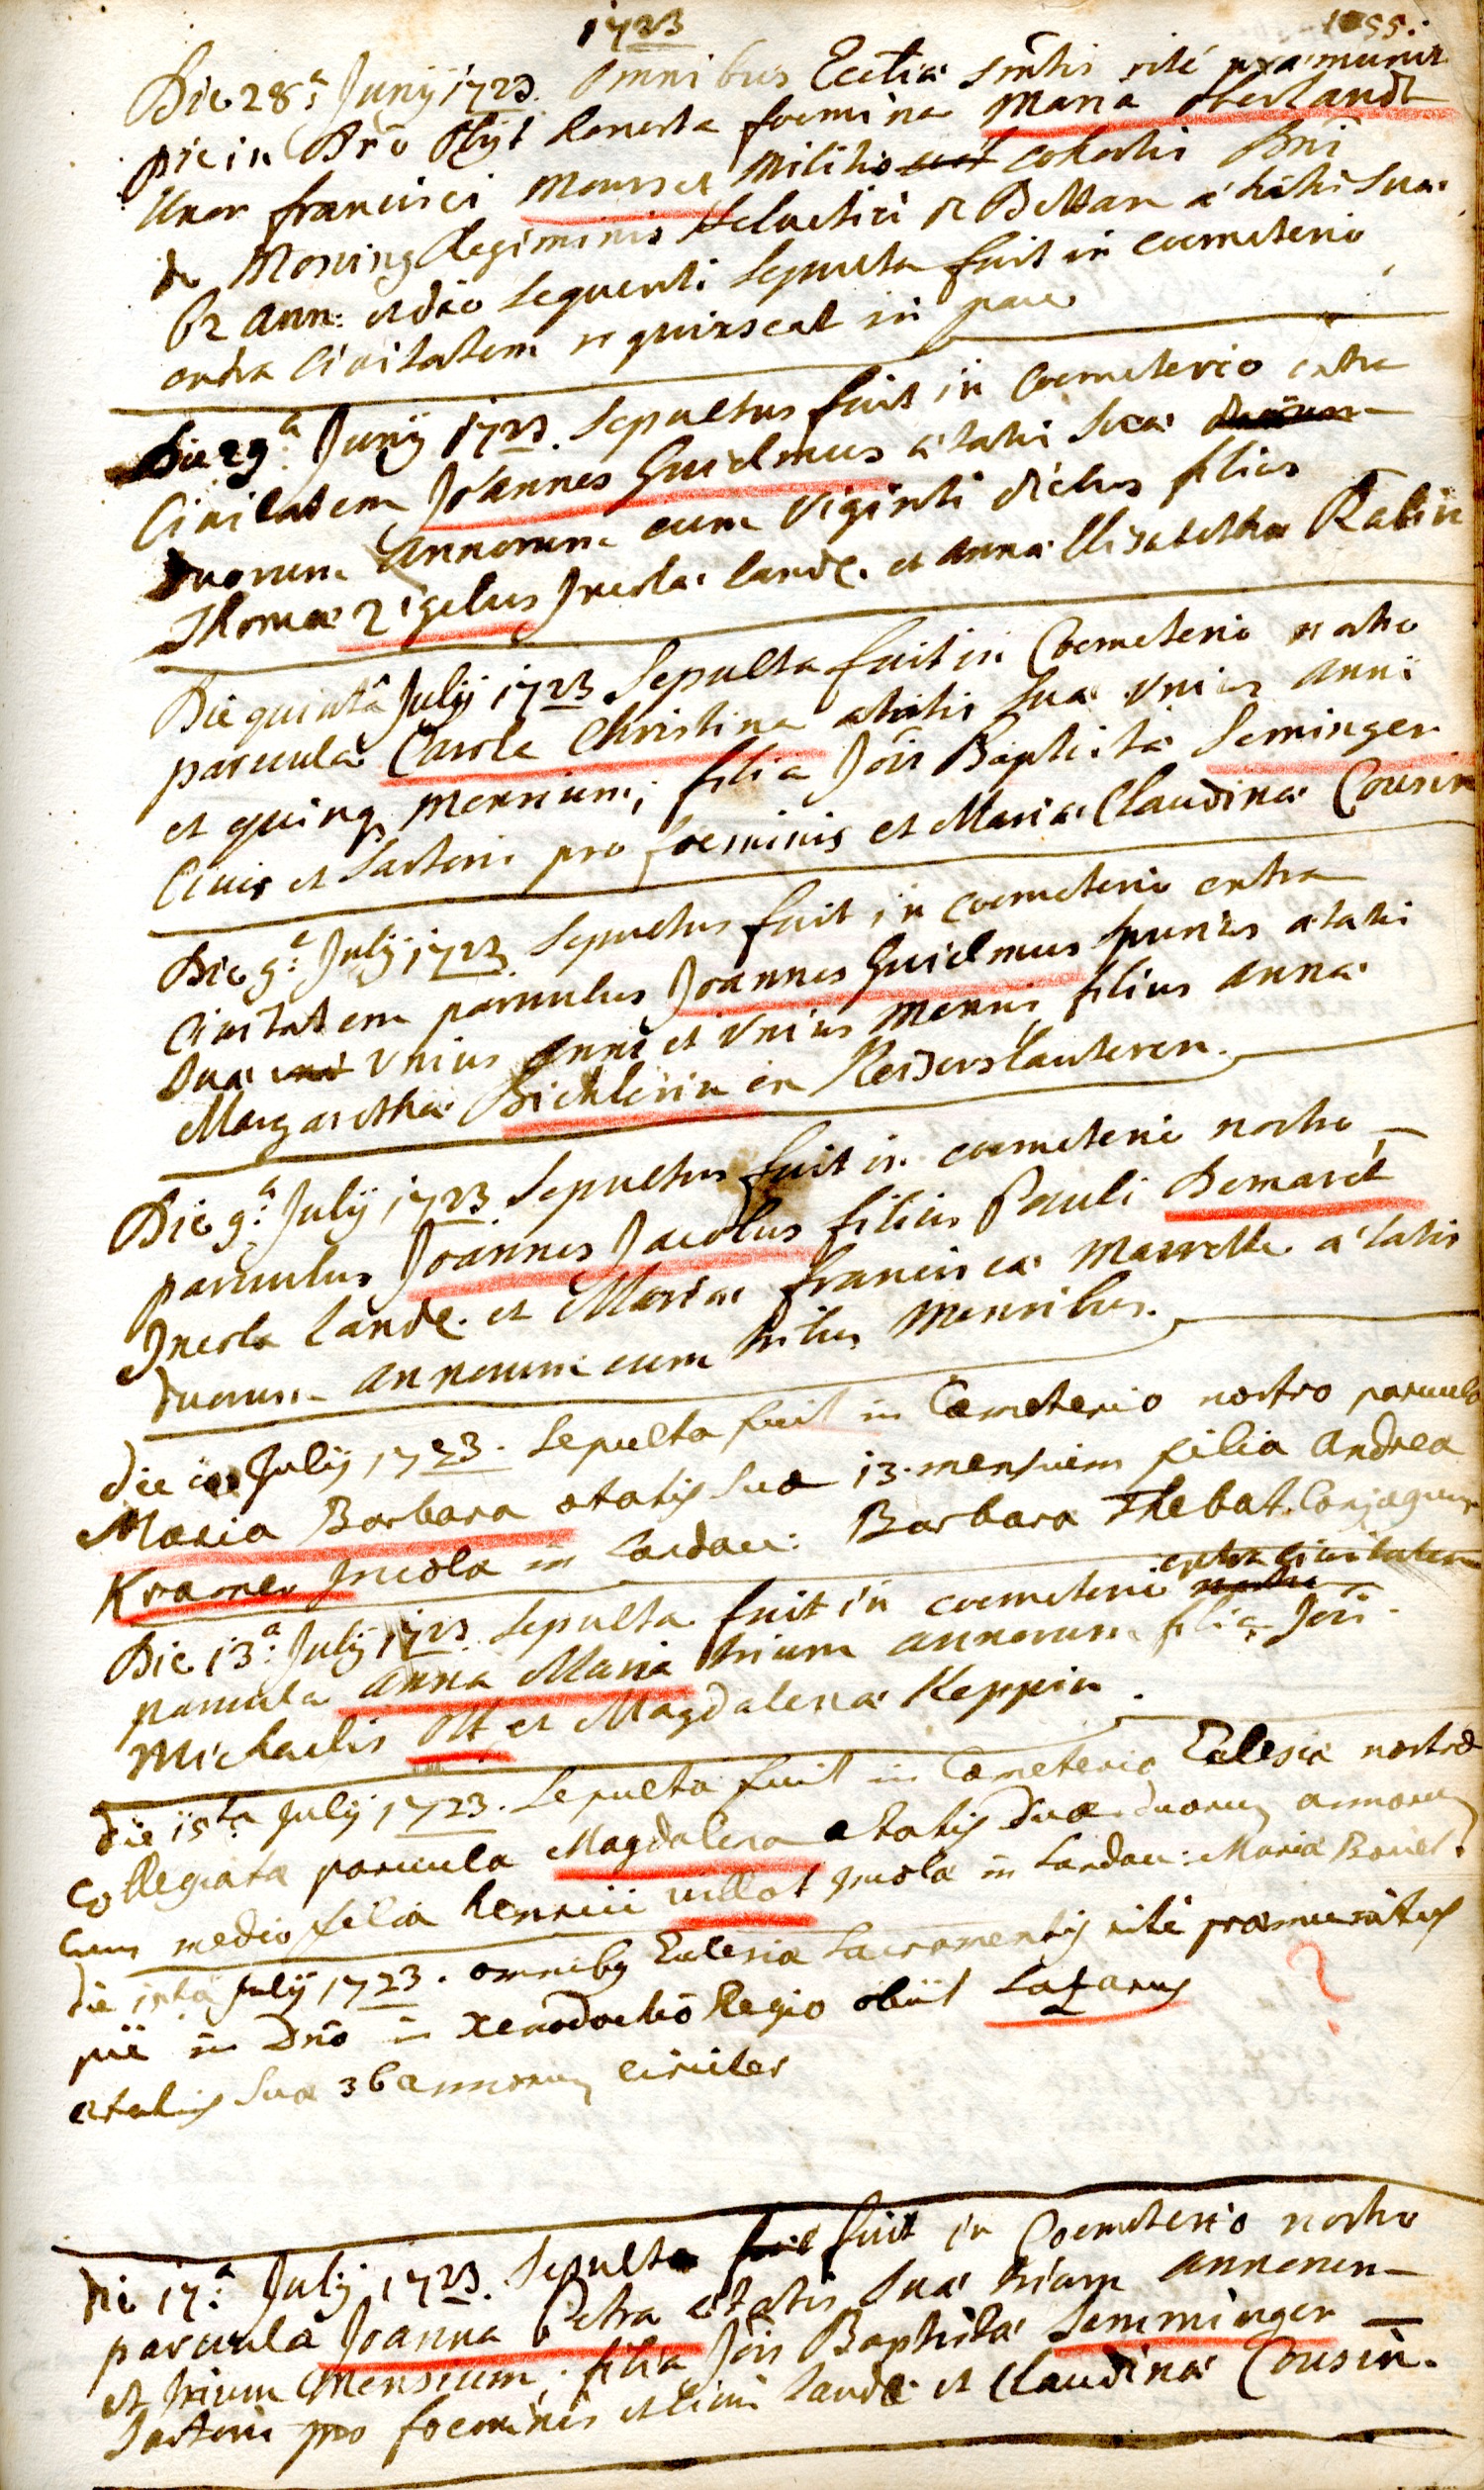 1723
1055.
Die 28.a Junij 1723. Omnibus Eccliæ smtis rité præmunita
pie in Dno Obijt honesta foemina Maria Oberlandt
Uxor francisci Mousset Militis cohortis Dni
de Monin Regiminis Helvetici de Bettan ætatis suæ
62 ann: et die sequenti Sepulta fuit in coemeterio
extra Civitatem requiescat in pace
Die 29.a Junij 1723. Sepultus fuit in Coemeterio extra
Civitatem Joannes Guielmus ætatis suæ
Duorum Annorum cum viginti diebus filius
Thomæ Zigelus Incolæ Land. et Annæ Elisabethæ Rabin
Die quintâ Julij 1723 Sepulta fuit in Coemeterio nostro
parvula Carola Christina ætatis suæ vnius anni
et quinq mensium; filia Jois Baptistæ Seminger
Civis et Sartoris pro foeminis et Mariæ Claudinæ Cousin
Die 9.a Julij 1723. Sepultus fuit in coemeterio extra
Civitatem parvulus Joannes Guielmus spurius ætatis
suæ vnius anni et vnius mensis filius Annæ
Margarethæ Bichlerin ex Keiserslauteren.
Die 9.a Julij 1723 Sepultus fuit in coemeterio nostro
parvulus Joannes Jacobus filius Pauli Demaret
Incolæ Land. et Mariæ franciscæ Mavette ætatis
duorum annorum cum tribus mensibus.
die Julij 1723. Sepulta fuit in Cæmeterio nostro parvula
Maria Barbara ætatis suæ 13. mensium filia Andreæ
Kramer Incolæ in Landau: Barbara Thebat Conjugum
extra civitatem
Die 13.a Julij 1723 Sepulta fuit in coemeterio nostro
parvula Anna Maria trium annorum filia Jois
Michaelis Ott et Magdalenæ Keppin.
die 15ta Julij 1723. Sepulta fuit in Cæmeterio Eclesiæ nostræ
Collegiatæ parvula Magdalena ætatis suæ duorum annorum
cum medio filia henrici villot Incolæ in Landau: Maria
die 15ta Julij 1723. omnibq Eclesiæ Sacramentis rité præmunitus
pie in Dnō in Xenodochio Regio obiit Lazarus
ætatis suæ 36 annorum circiter
?
Die 17.a Julij 1723. Sepulta fuit in Coemeterio nostro
parvula Joanna Petra ætatis suæ trium annorum
et trium mensium; filia Jois Baptistæ Semminger
Sartoris pro foeminis et Civis Landæ et Claudinæ Cousin.